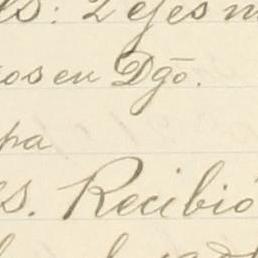 es: 2 ejes m
os en Dgo.
pa
s. Recibió